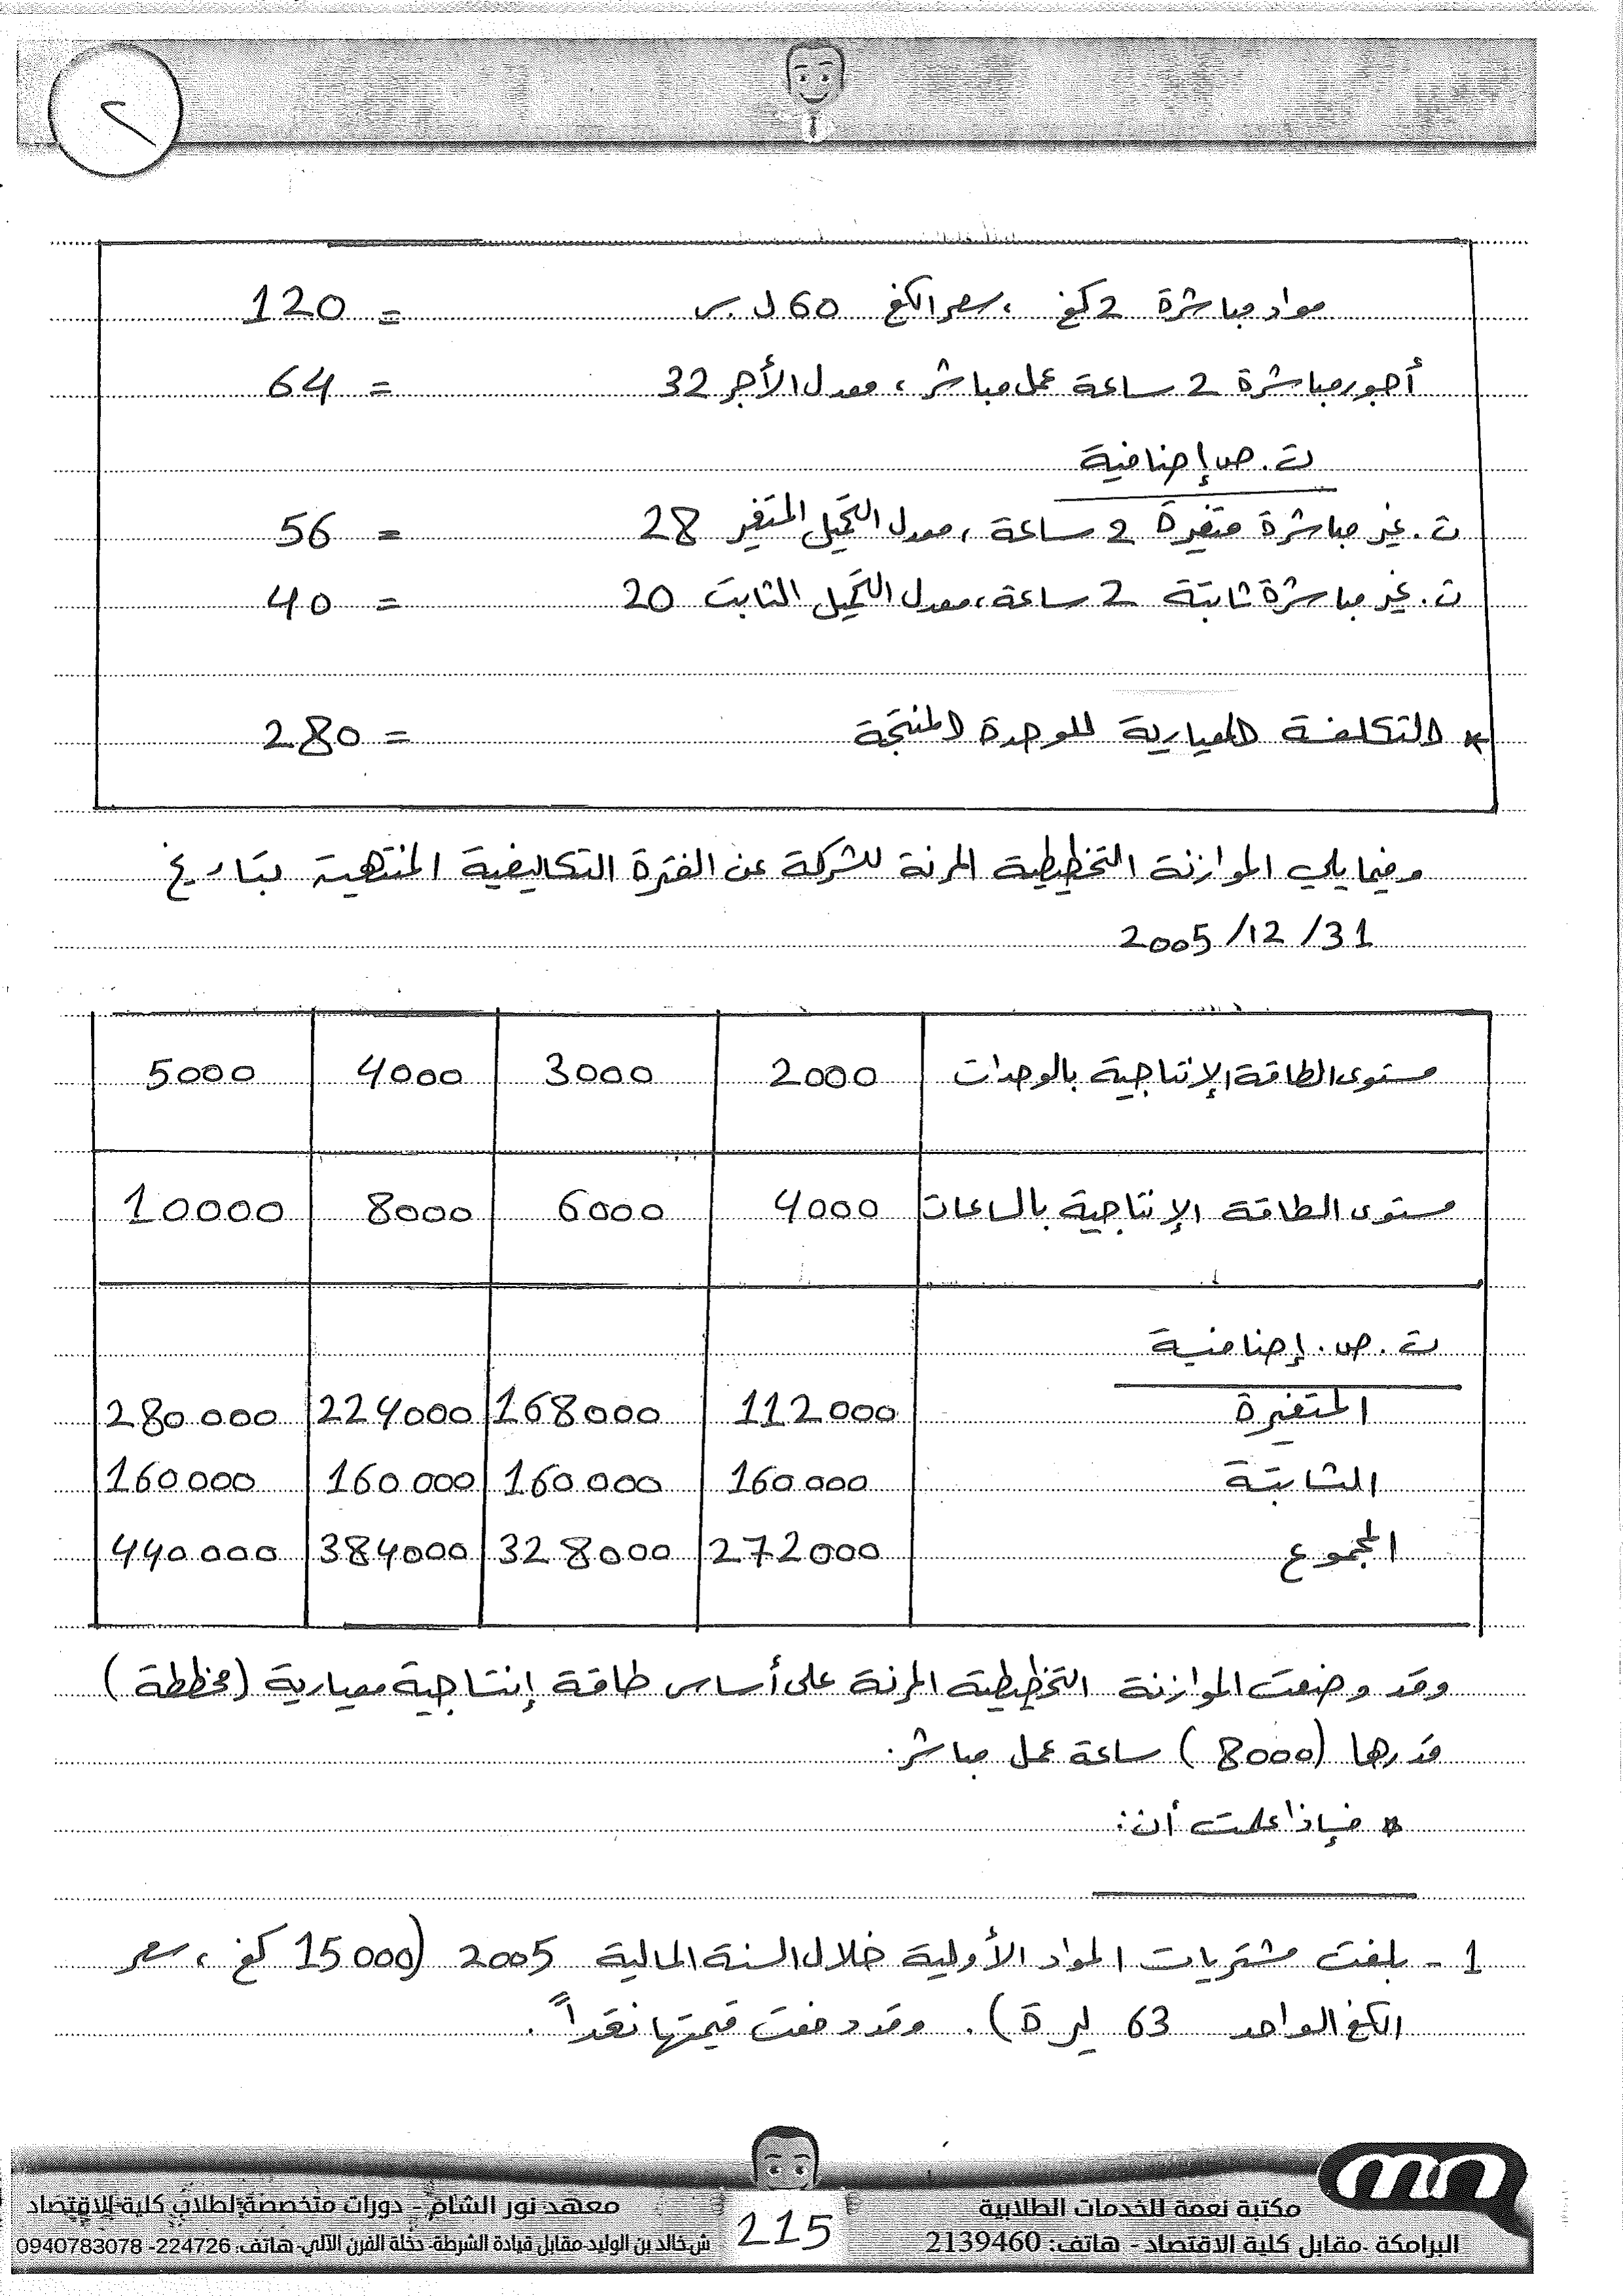 ٢
مواد مباشرة 2 كغ ، سعر الكغ 60 ل.س = 120
أجور مباشرة 2 ساعة عمل مباشر ، معدل الأجر 32 = 64
ت.ص إضافية
ت.غير مباشرة متغيرة 2 ساعة ، معدل التحميل المتغير 28 = 56
ت.غير مباشرة ثابتة 2 ساعة ، معدل التحميل الثابت 20 = 40
* التكلفة المعيارية للوحدة المنتجة = 280
وفيما يلي الموازنة التخطيطية المرنة للشركة عن الفترة التكاليفية المنتهية بتاريخ
2005/12/31
مستوى الطاقة الإنتاجية بالوحدات 2000 3000 4000 5000
مستوى الطاقة الإنتاجية بالساعات 4000 6000 8000 10000
ت.ص.إضافية
المتغيرة 112000 168000 224000 280000
الثابتة 160000 160000 160000 160000
المجموع 272000 328000 384000 440000
وقد وضعت الموازنة التخطيطية المرنة على أساس طاقة إنتاجية معيارية (مخططة)
قدرها (8000) ساعة عمل مباشر.
* فإذا علمت أن:
1- بلغت مشتريات المواد الأولية خلال السنة المالية 2005 (15000 كغ ، سعر
الكغ الواحد 63 ليرة). وقد دفعت قيمتها نقداً.
مكتبة نعمة للخدمات الطلابية
البرامكة -مقابل كلية الاقتصاد - هاتف: 2139460
215
معهد نور الشام - دورات متخصصة لطلاب كلية الاقتصاد
ش خالد بن الوليد مقابل قيادة الشرطة- دخلة الفرن الآلي- هاتف: 224726- 0940783078